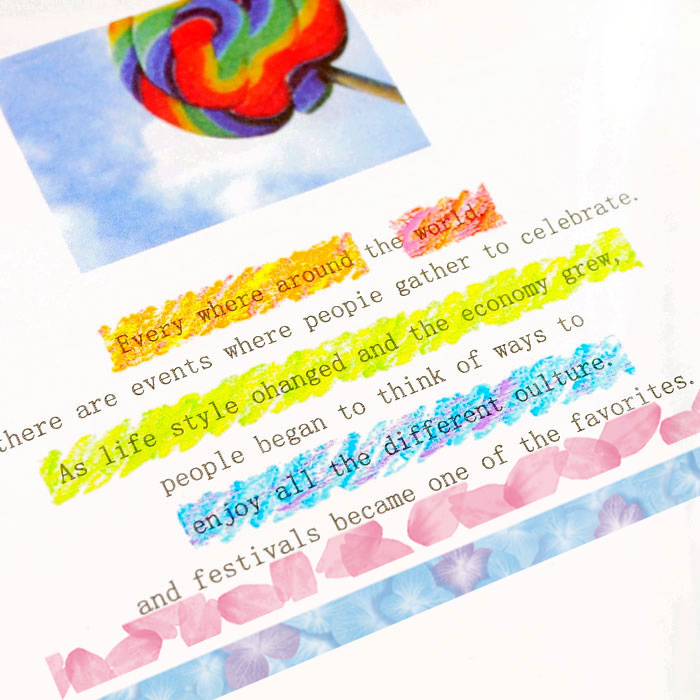 Every where around the world,
there are events where peopie gather to celebrate.
As life style ohanged and the economy grew,
people began to think of ways to
enjoy all the different oulture.
and festivals became one of the favorites.